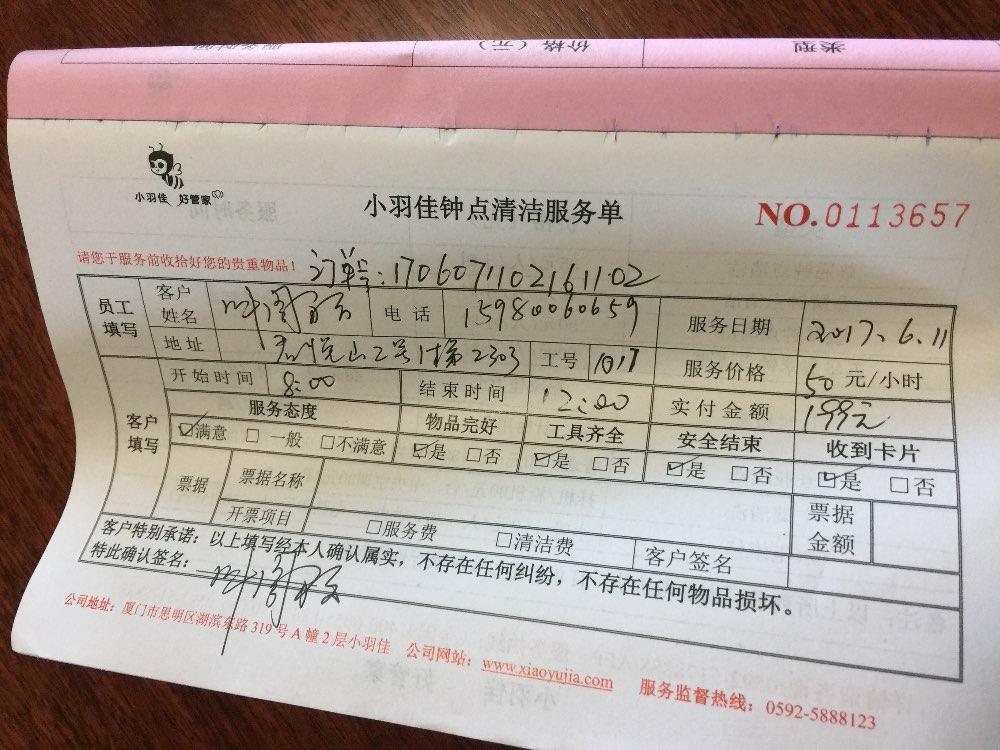 类型 价格（元） 服务时间
小羽佳 好管家
小羽佳钟点清洁服务单
NO.0113657
请您于服务前收拾好您的贵重物品！ 订单号:1706071102161102
员工填写 客户姓名 电话 15980060659 服务日期 2017.6.11
地址 2号1梯2303 工号 1017 服务价格 50元/小时
客户填写 开始时间 8:00 结束时间 12:00 实付金额 199元
服务态度 物品完好 工具齐全 安全结束 收到卡片
☑满意 □一般 □不满意 ☑是 □否 ☑是 □否 ☑是 □否 ☑是 □否
票据 票据名称 票据金额
开票项目 □服务费 □清洁费 客户签名
客户特别承诺：以上填写经本人确认属实，不存在任何纠纷，不存在任何物品损坏。
特此确认签名：
公司地址：厦门市思明区湖滨东路319号A幢2层小羽佳 公司网站：www.xiaoyujia.com 服务监督热线：0592-5888123